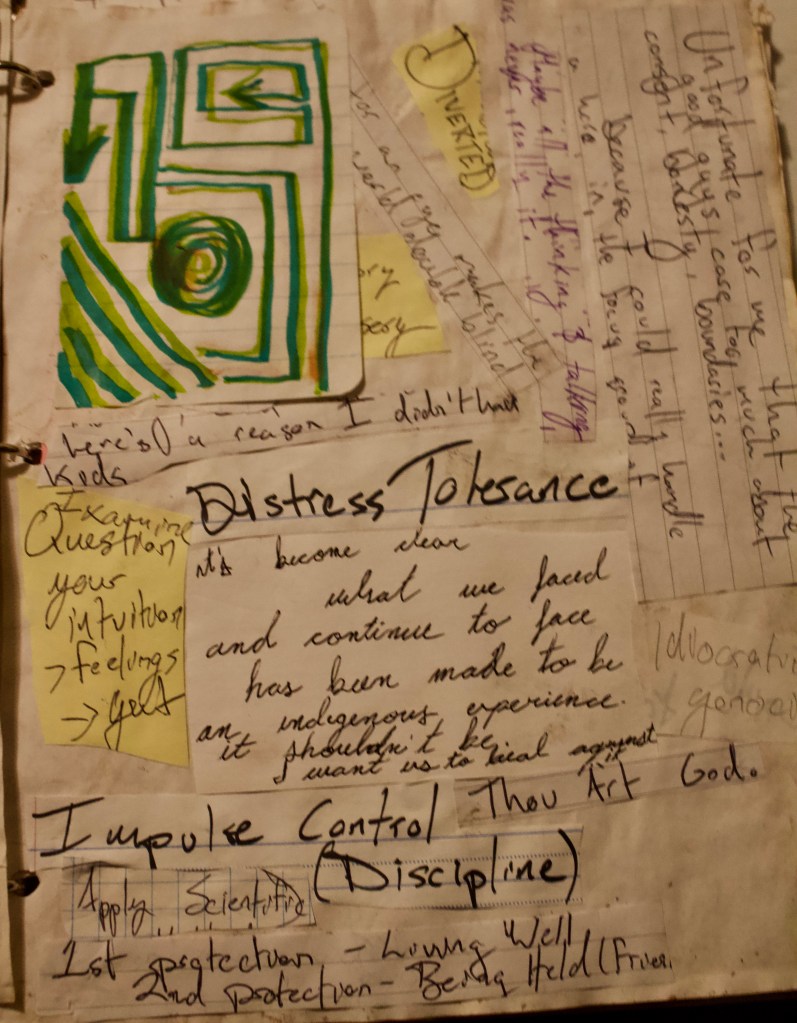 DIVERTED
Unfortunate for me that the
good guys, case too much about
consent, honesty, boundaries...
Because I could really handle
in, the focus
Maybe all the thinking & talking,
really it.
for an eye makes the
world blind
there's a reason I didn't have
Kids
Distress Tolerance
Examine
Question
your
intuition
→ feelings
→ gut
it's become clear
what we faced
and continue to face
has been made to be
an indigenous experience.
it shouldn't be.
I want us to heal against
it
Thou Art God.
Impulse Control
(Discipline)
Apply Scientific
1st protection - Living Well
2nd protection - Being Held (